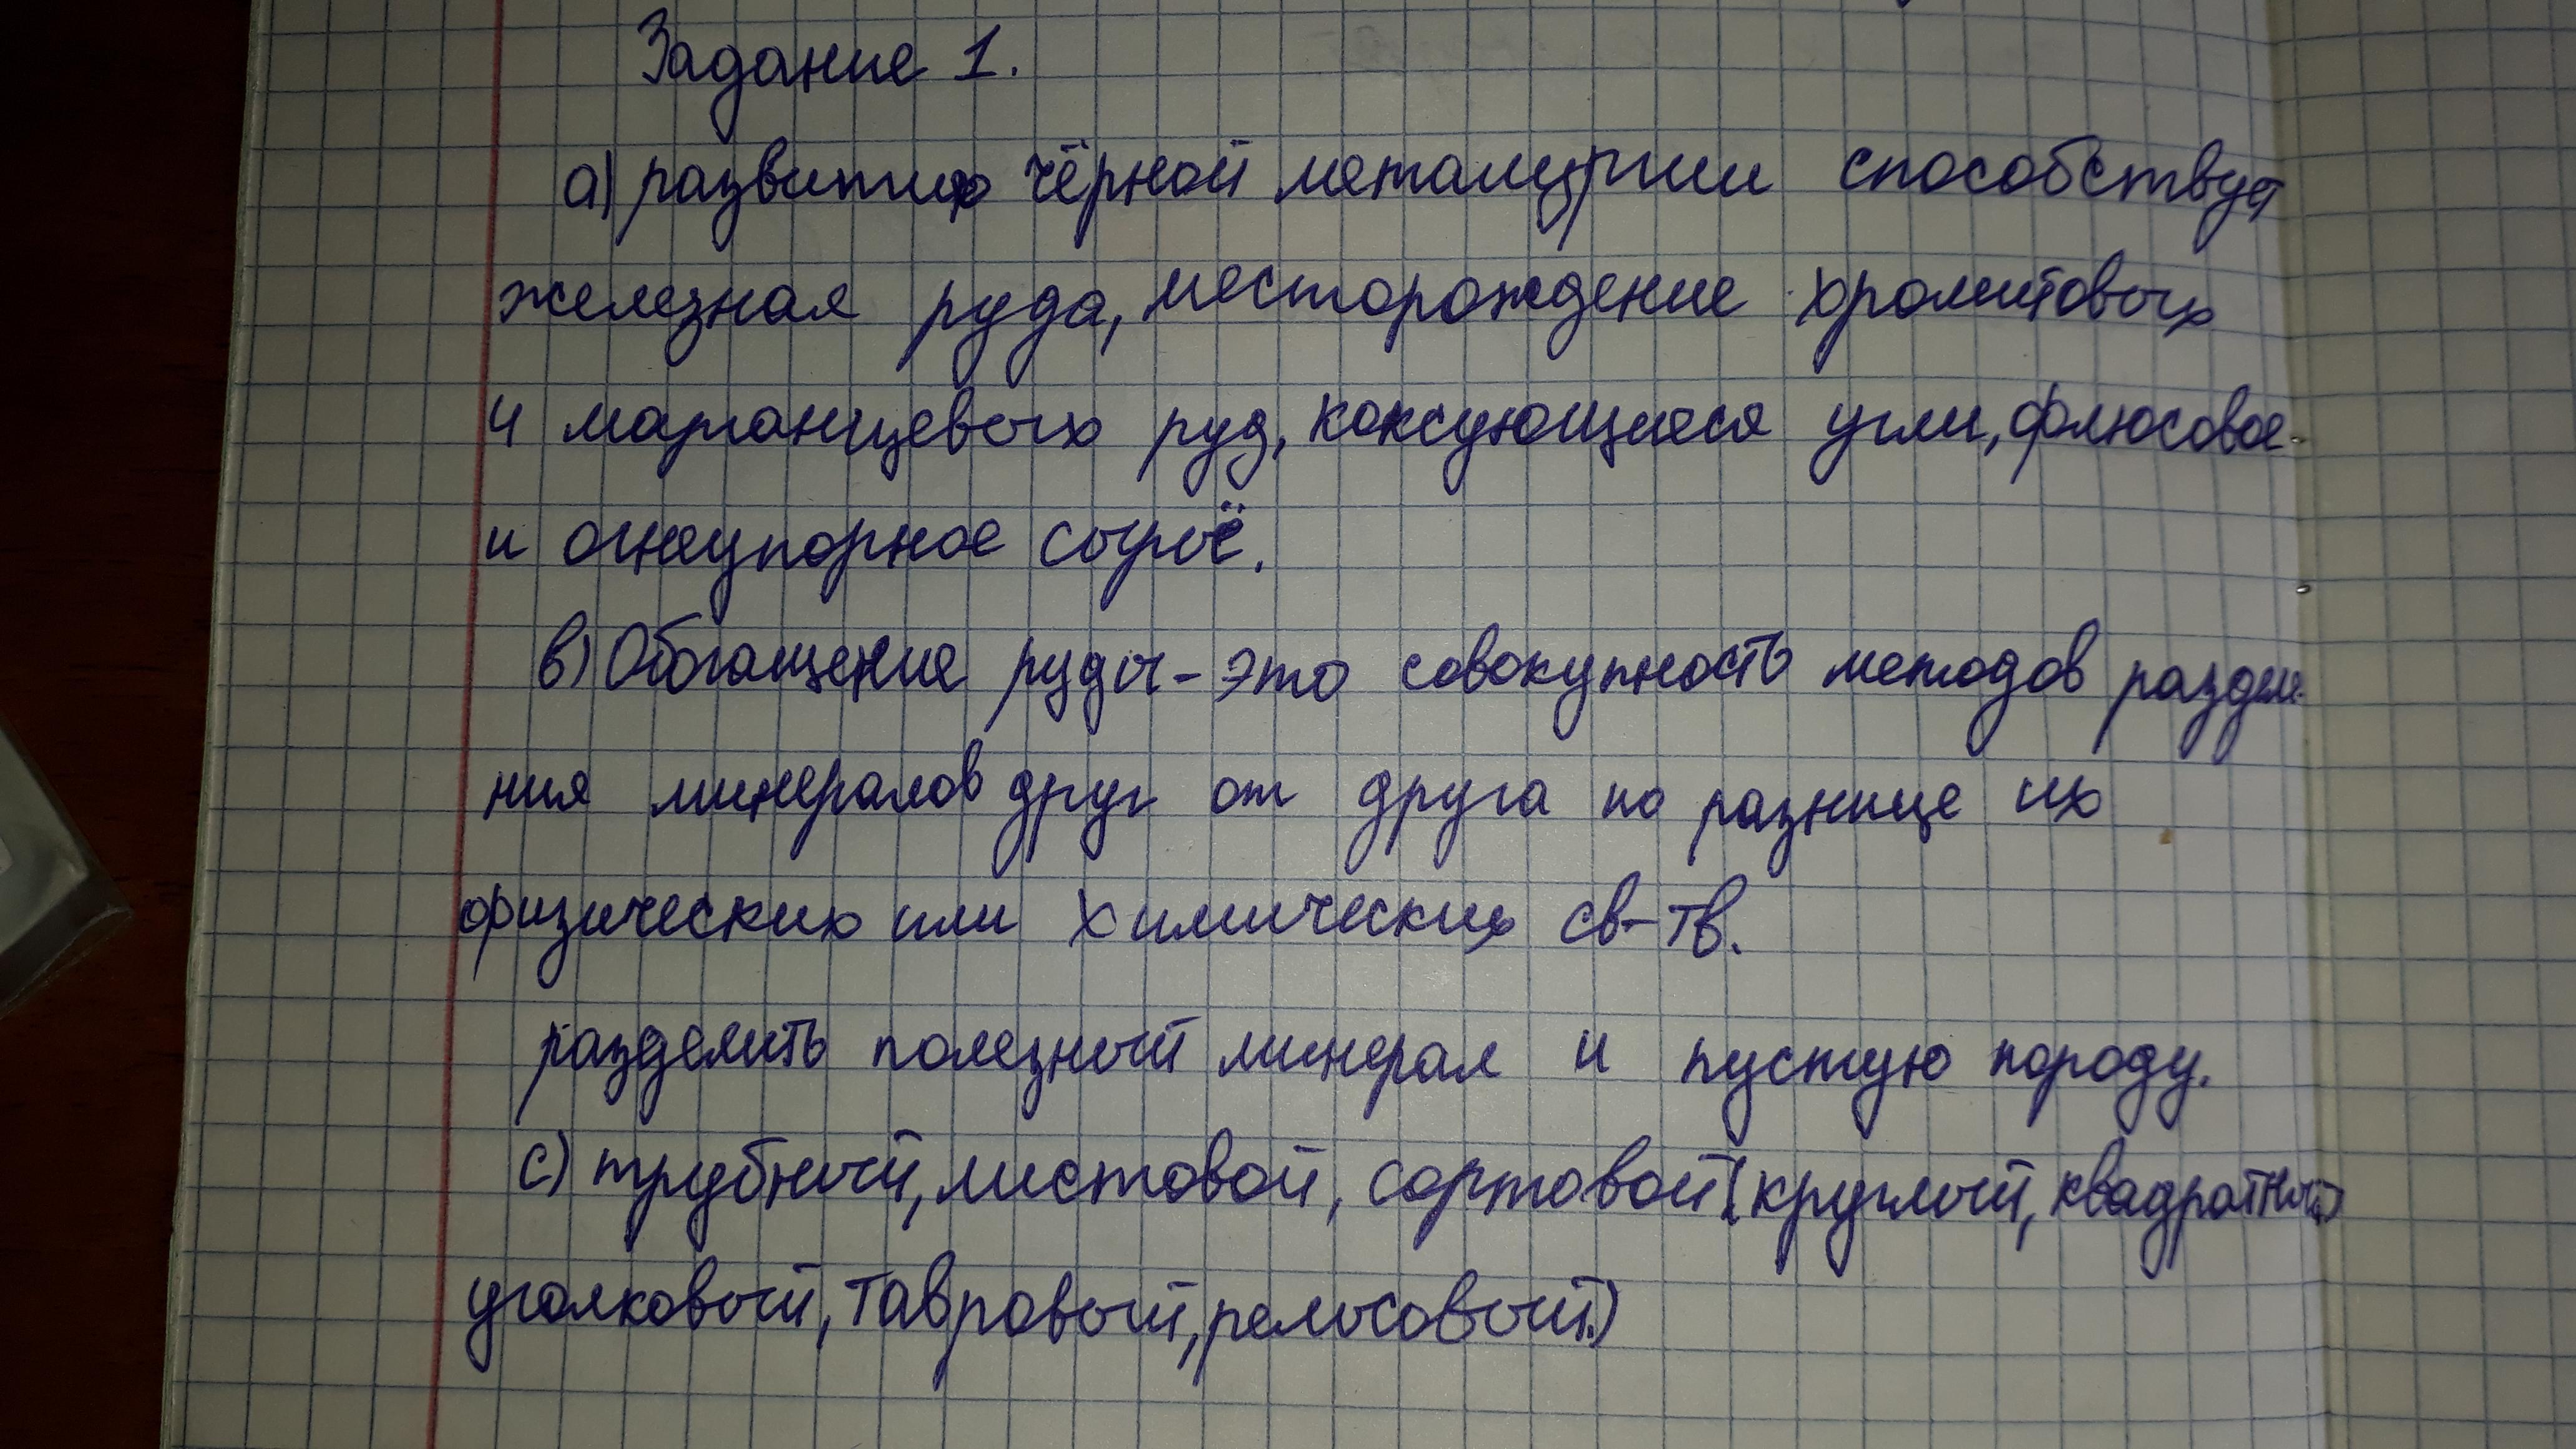 Задание 1.
а) развитию чёрной металургии способствует
железная руда, месторождение хромитовых
и марганцевых руд, коксующиеся угли, флюсовое
и огнеупорное сырьё.
в) Обогащение руды - это совокупность методов разделе-
ния минералов друг от друга по разнице их
физических или химических св-тв.
разделить полезный минерал и пустую породу.
с) трубный, листовой, сортовой (круглый, квадратный,
уголковый, тавровый, рельсовый.)